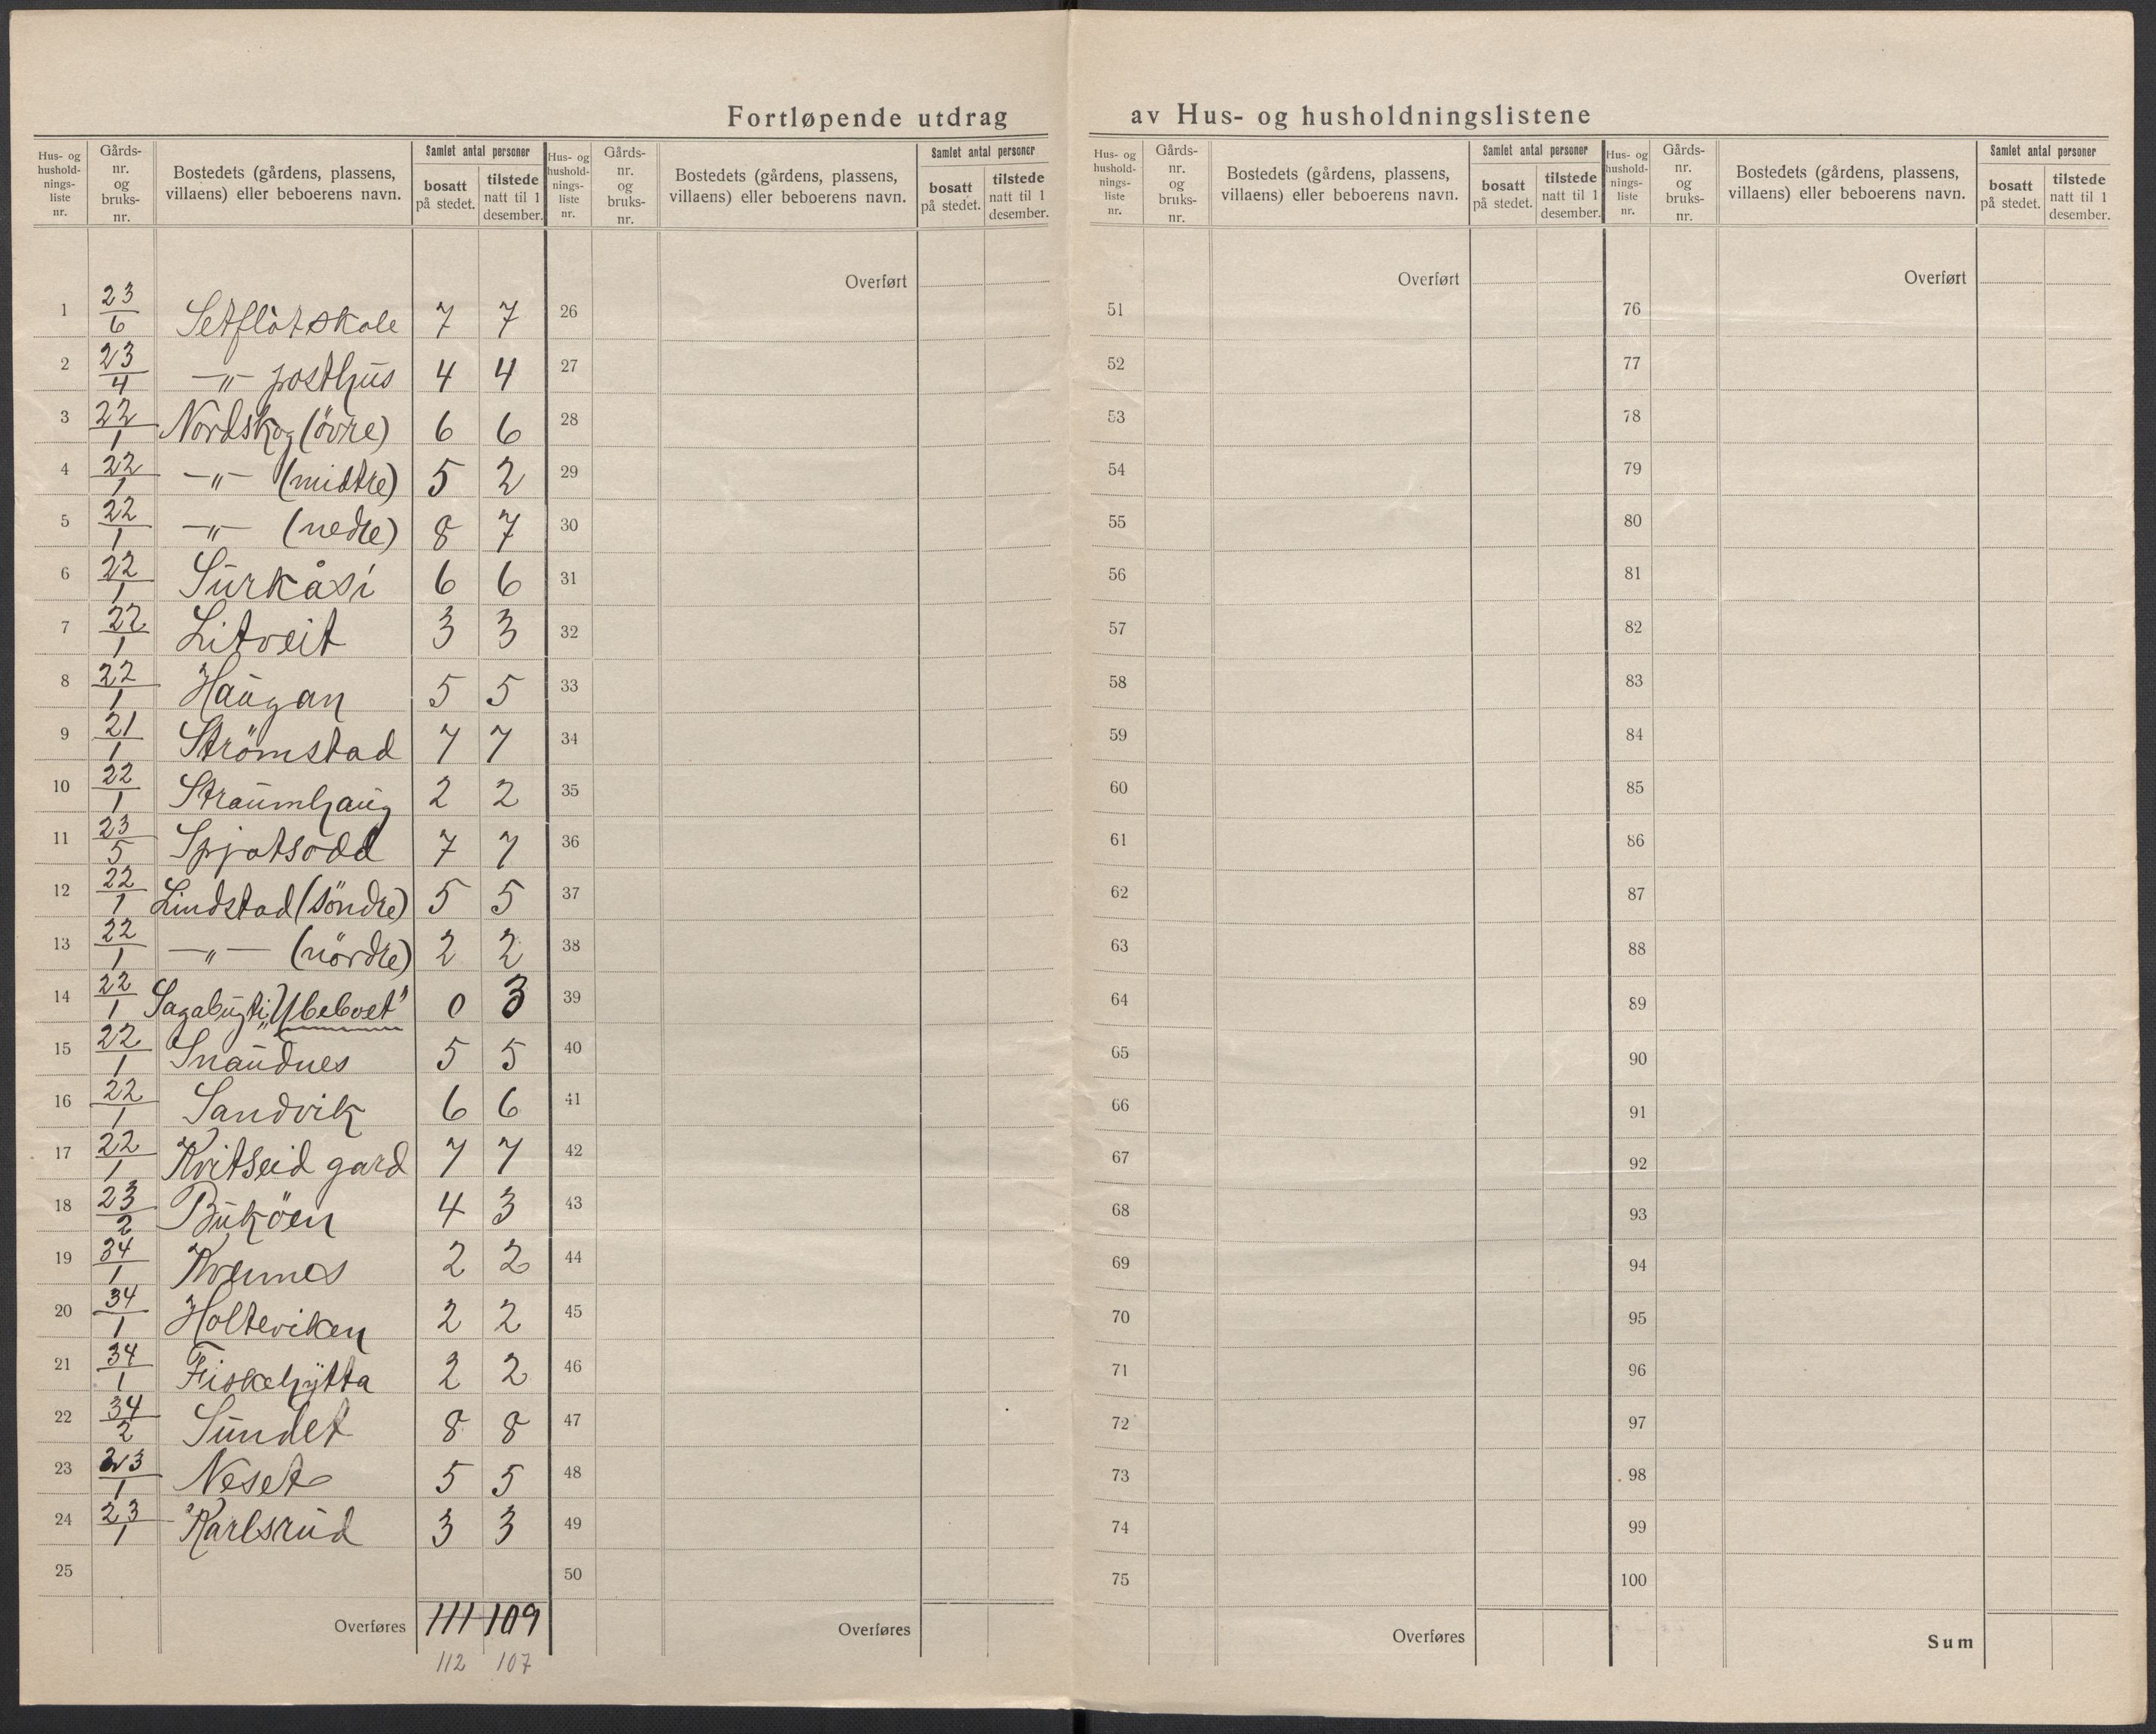 Fortløpende utdrag av Hus- og husholdningslistene
Hus- og husholdnings-liste nr. | Gårds-nr. og bruks-nr. | Bostedets (gårdens, plassens, villaens) eller beboerens navn. | Samlet antal personer | bosatt på stedet. | tilstede natt til 1 desember.
Hus- og husholdnings-liste nr. | Gårds-nr. og bruks-nr. | Bostedets (gårdens, plassens, villaens) eller beboerens navn. | Samlet antal personer | bosatt på stedet. | tilstede natt til 1 desember.
Hus- og husholdnings-liste nr. | Gårds-nr. og bruks-nr. | Bostedets (gårdens, plassens, villaens) eller beboerens navn. | Samlet antal personer | bosatt på stedet. | tilstede natt til 1 desember.
Hus- og husholdnings-liste nr. | Gårds-nr. og bruks-nr. | Bostedets (gårdens, plassens, villaens) eller beboerens navn. | Samlet antal personer | bosatt på stedet. | tilstede natt til 1 desember.
Overført Overført Overført
1 23/6 Setflåtskole 7 7 26 51 76
2 23/4 —"— posthus 4 4 27 52 77
3 22/1 Nordskog (övre) 6 6 28 53 78
4 22/1 —"— (midtre) 5 2 29 54 79
5 22/1 —"— (nedre) 8 7 30 55 80
6 22/1 Surkåsi 6 6 31 56 81
7 22/1 Litveit 3 3 32 57 82
8 22/1 Haugan 5 5 33 58 83
9 21/1 Strömstad 7 7 34 59 84
10 22/1 Straumhaug 2 2 35 60 85
11 23/5 Spjotsodd 7 7 36 61 86
12 22/1 Lindstad (söndre) 5 5 37 62 87
13 22/1 —"— (nördre) 2 2 38 63 88
14 22/1 Sagabugti „Ubeboet" 0 3 39 64 89
15 22/1 Snaudnes 5 5 40 65 90
16 22/1 Sandvik 6 6 41 66 91
17 22/1 Kvitseid gard 7 7 42 67 92
18 23/2 Buköen 4 3 43 68 93
19 34/1 Kvennes 2 2 44 69 94
20 34/1 Holteviken 2 2 45 70 95
21 34/1 Fiskehytta 2 2 46 71 96
22 34/2 Sundet 8 8 47 72 97
23 23/1 Neset 5 5 48 73 98
24 23/1 Karlsrud 3 3 49 74 99
25 50 75 100
Overføres 111 109 Overføres Overføres Sum
112 107